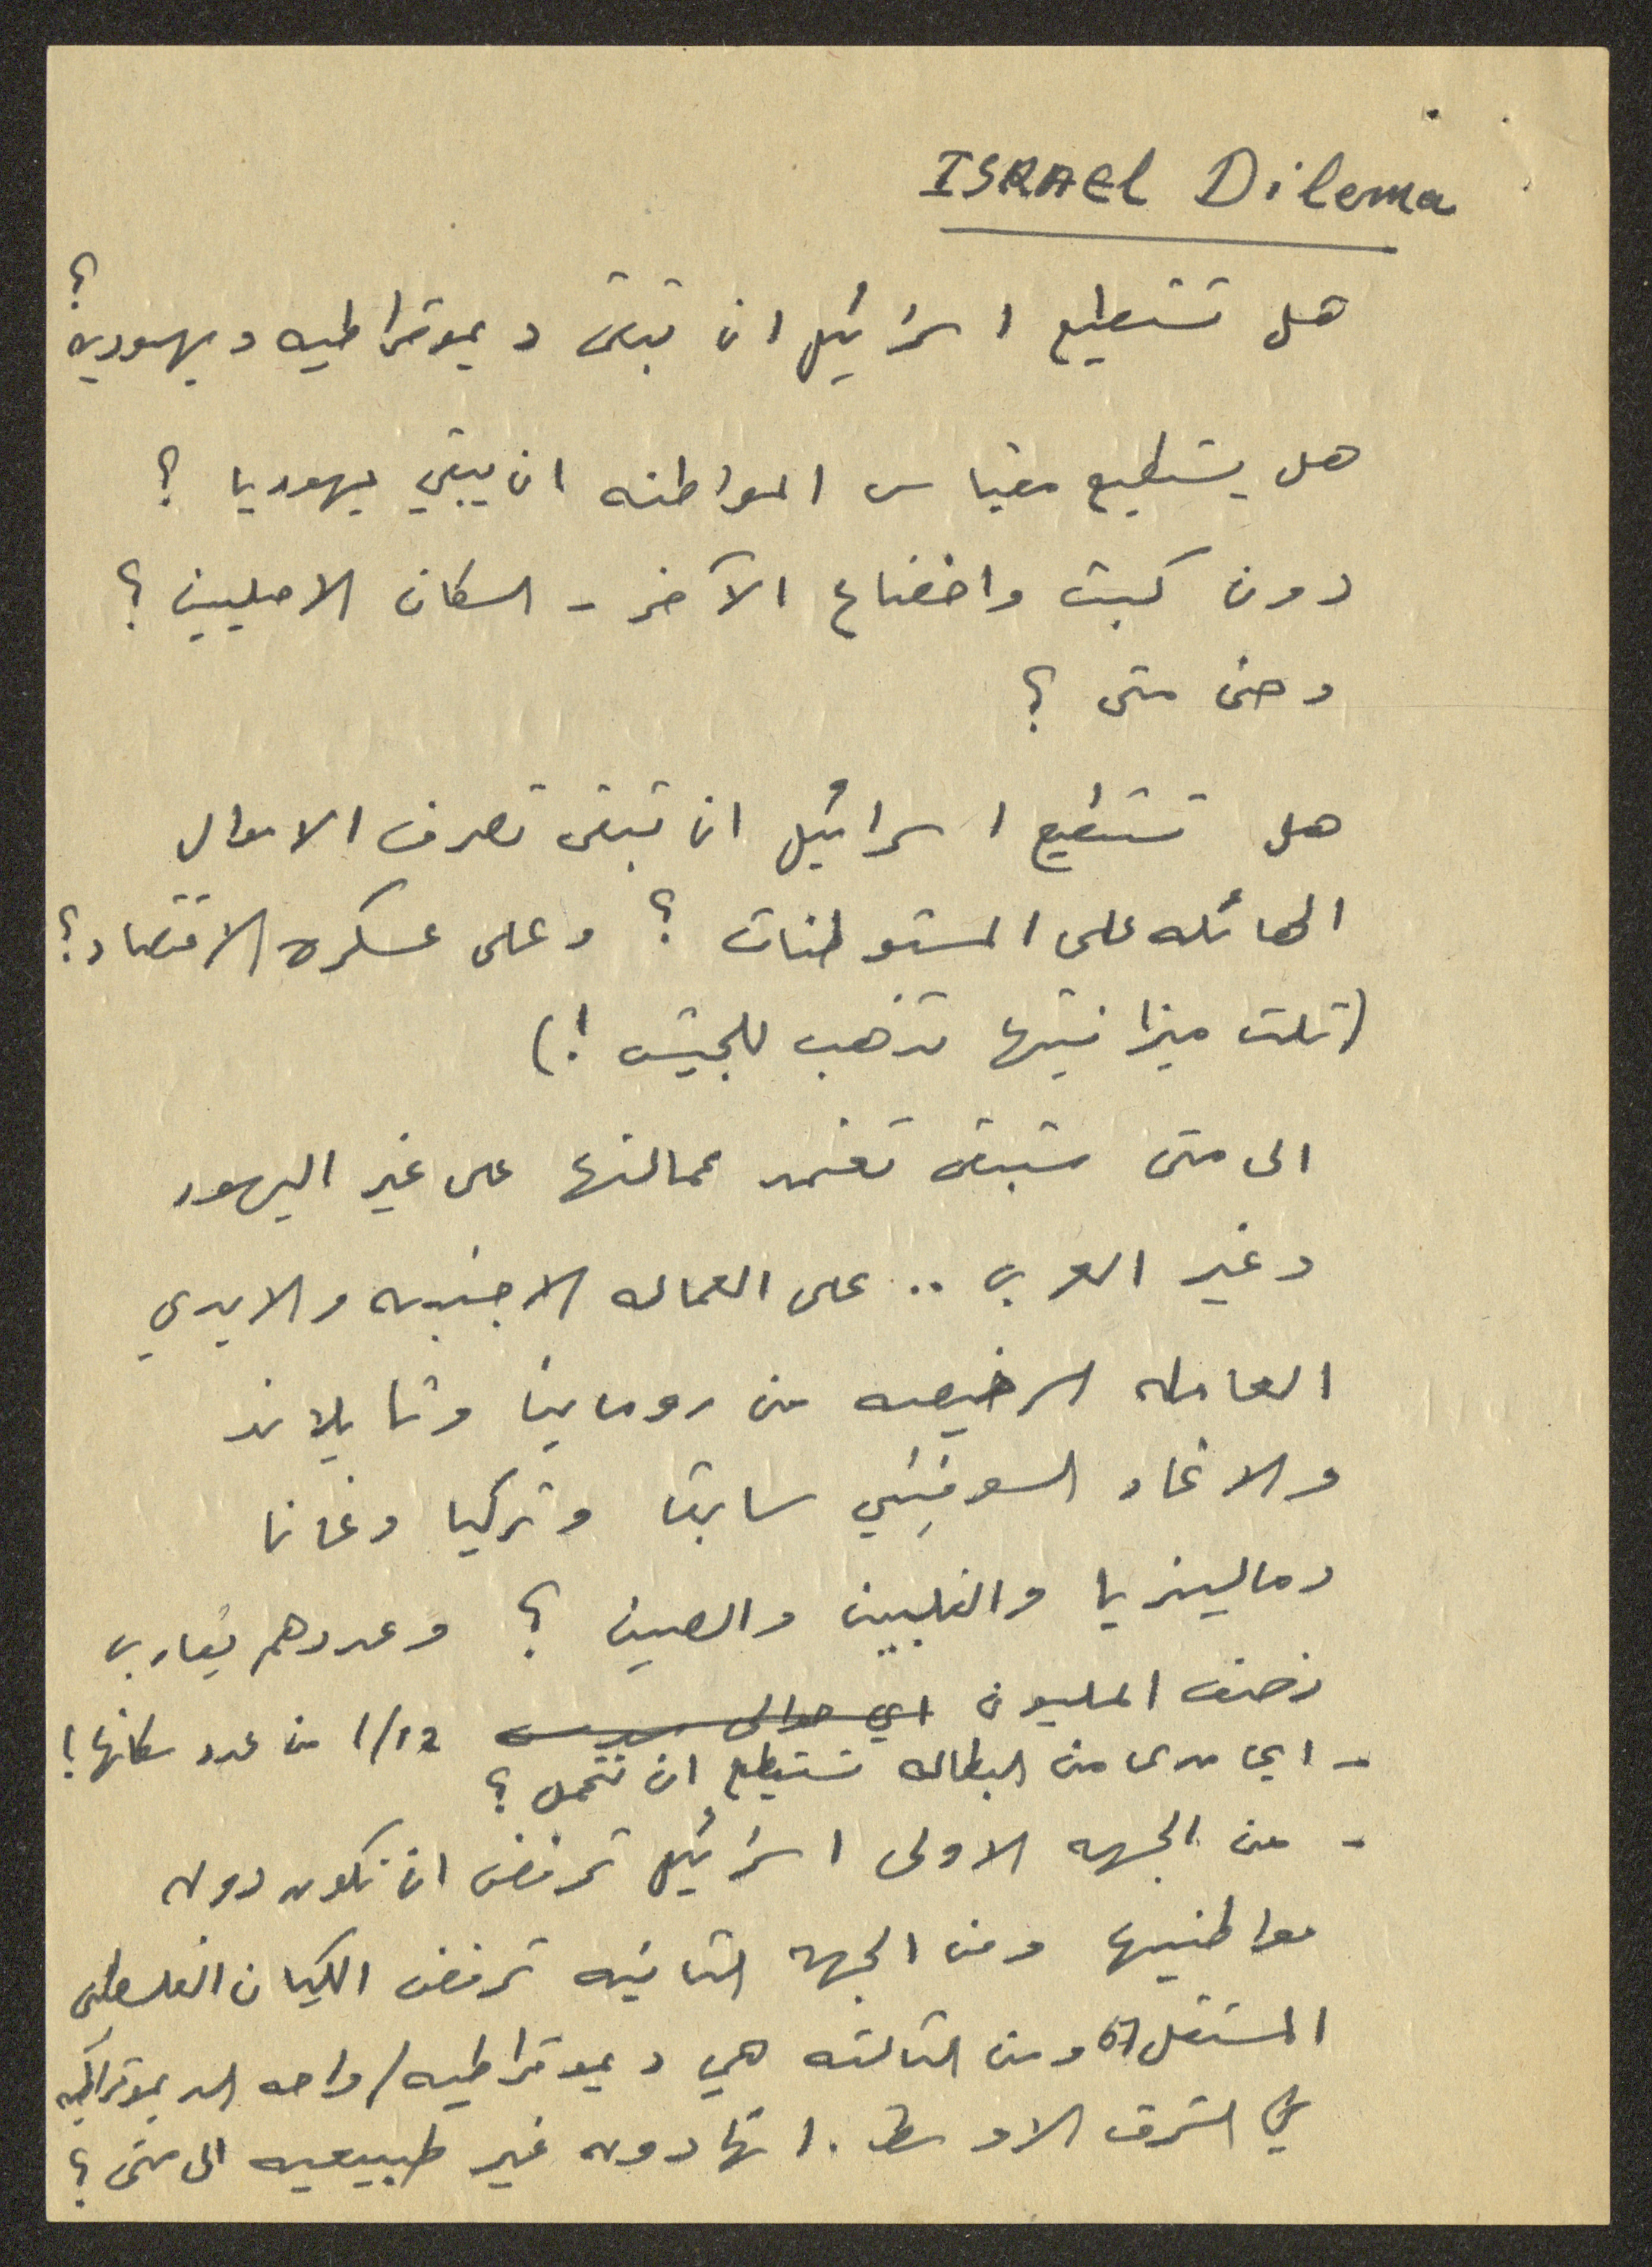 ISRAEL Dilema
هل تستطيع اسرائيل ان تبقى ديموقراطيه ويهوديه ؟
هل يستطيع مقياس المواطنه ان يبقي يهوديا ؟
دون كبت واخضاع الآخر - السكان الاصليين ؟
وحتى متى ؟
هل تستطيع اسرائيل ان تبقى تصرف الاموال
الهائله على المستوطنات ؟ وعلى عسكرة الاقتصاد ؟
(تلت ميزانيتها تذهب للجيش !)
الى متى ستبقى تعتمد عمالتها على غير اليهود
وغير العرب .. على العماله الاجنبيه والايدي
العامله الرخيصه من رومانيا وتايلاند
والاتحاد السوفيتي سابقا وتركيا وغانا
وماليزيا والفلبين والصين ؟ وعددهم يقارب
نصف المليون اي حوالي 1/12 من عدد سكانها !
- اي مدى من البطاله تستطيع ان تتحمل ؟
- من الجهه الاولى اسرائيل ترفض ان تكون دولة
مواطنيها ومن الجهة التانيه ترفض الكيان الفلسطيني
المستقل 67 ومن التالته هي ديموقراطيه/واحه الديموقراطيه
في الشرق الاوسط . انها دوله غير طبيعيه الى متى ؟